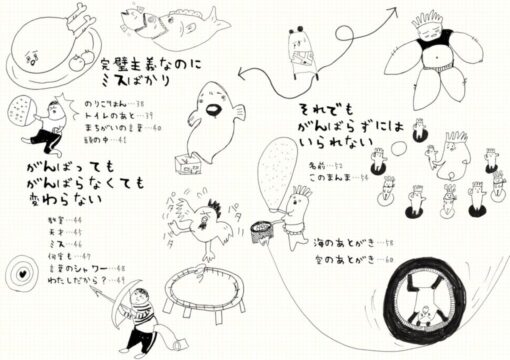 完璧主義なのに
ミスばかり
のりこりょん…38
トイレのあと…39
まちがいの言葉…40
頭の中…41
がんばっても
がんばらなくても
変わらない
教室…44
天才…45
ミス…46
何度も…47
言葉のシャワー…48
わたしだから?…49
ペタ
ペタ
それでも
がんばらずには
いられない
名前…52
このまんま…54
海のあとがき…58
空のあとがき…60